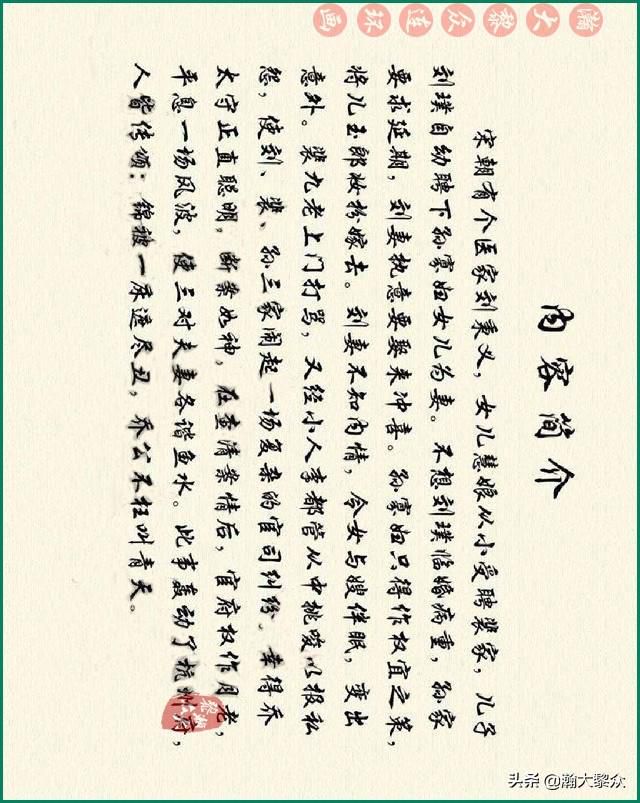 瀚大黎众连环画
内容简介
宋朝有个医家刘秉义，女儿慧娘从小受聘裴家，儿子
刘璞自幼聘下孙寡妇女儿为妻。不想刘璞临婚病重，孙家
要求延期，刘妻执意要娶来冲喜。孙寡妇只得作权宜之策，
将儿玉郎妆扮嫁去。刘妻不知内情，令女与嫂伴眠，变出
意外。裴九老上门打骂，又经小人李都管从中挑唆以报私
怨，使刘、裴、孙三家闹起一场复杂的官司纠纷。幸得乔
太守正直聪明，断案如神，在查清案情后，官府权作月老，
平息一场风波，使三对夫妻各谐鱼水。此事轰动了杭州府，
人皆传颂：锦被一床遮尽丑，乔公不枉叫青天。
头条 @瀚大黎众